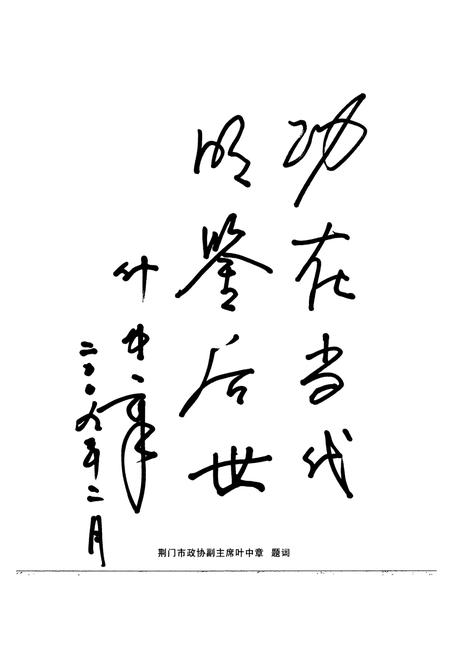 功在当代
明鉴后世
叶中章
二〇〇九年二月
荆门市政协副主席叶中章 题词